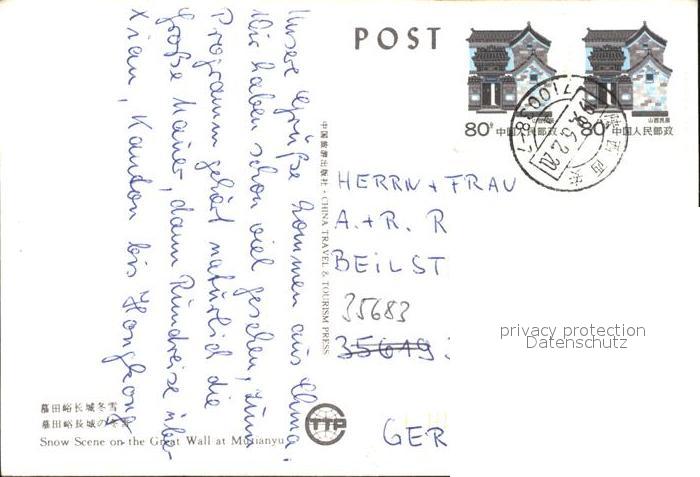 Unsere Grüße kommen aus China.
Wir haben schon viel gesehen, zum
Programm gehört natürlich die
Große Mauer, dann Rundreise über
Xian, Kanton bis Hongkong
POST
80分 中国人民邮政
山西民居
80分 中国人民邮政
山西民居
710038
中国旅游出版社·CHINA TRAVEL & TOURISM PRESS
HERRN + FRAU
A. + R. R
BEILST
35683
35649
GER
privacy protection
Datenschutz
慕田峪长城冬雪
慕田峪長城の冬
Snow Scene on the Great Wall at Mutianyu
CTTP